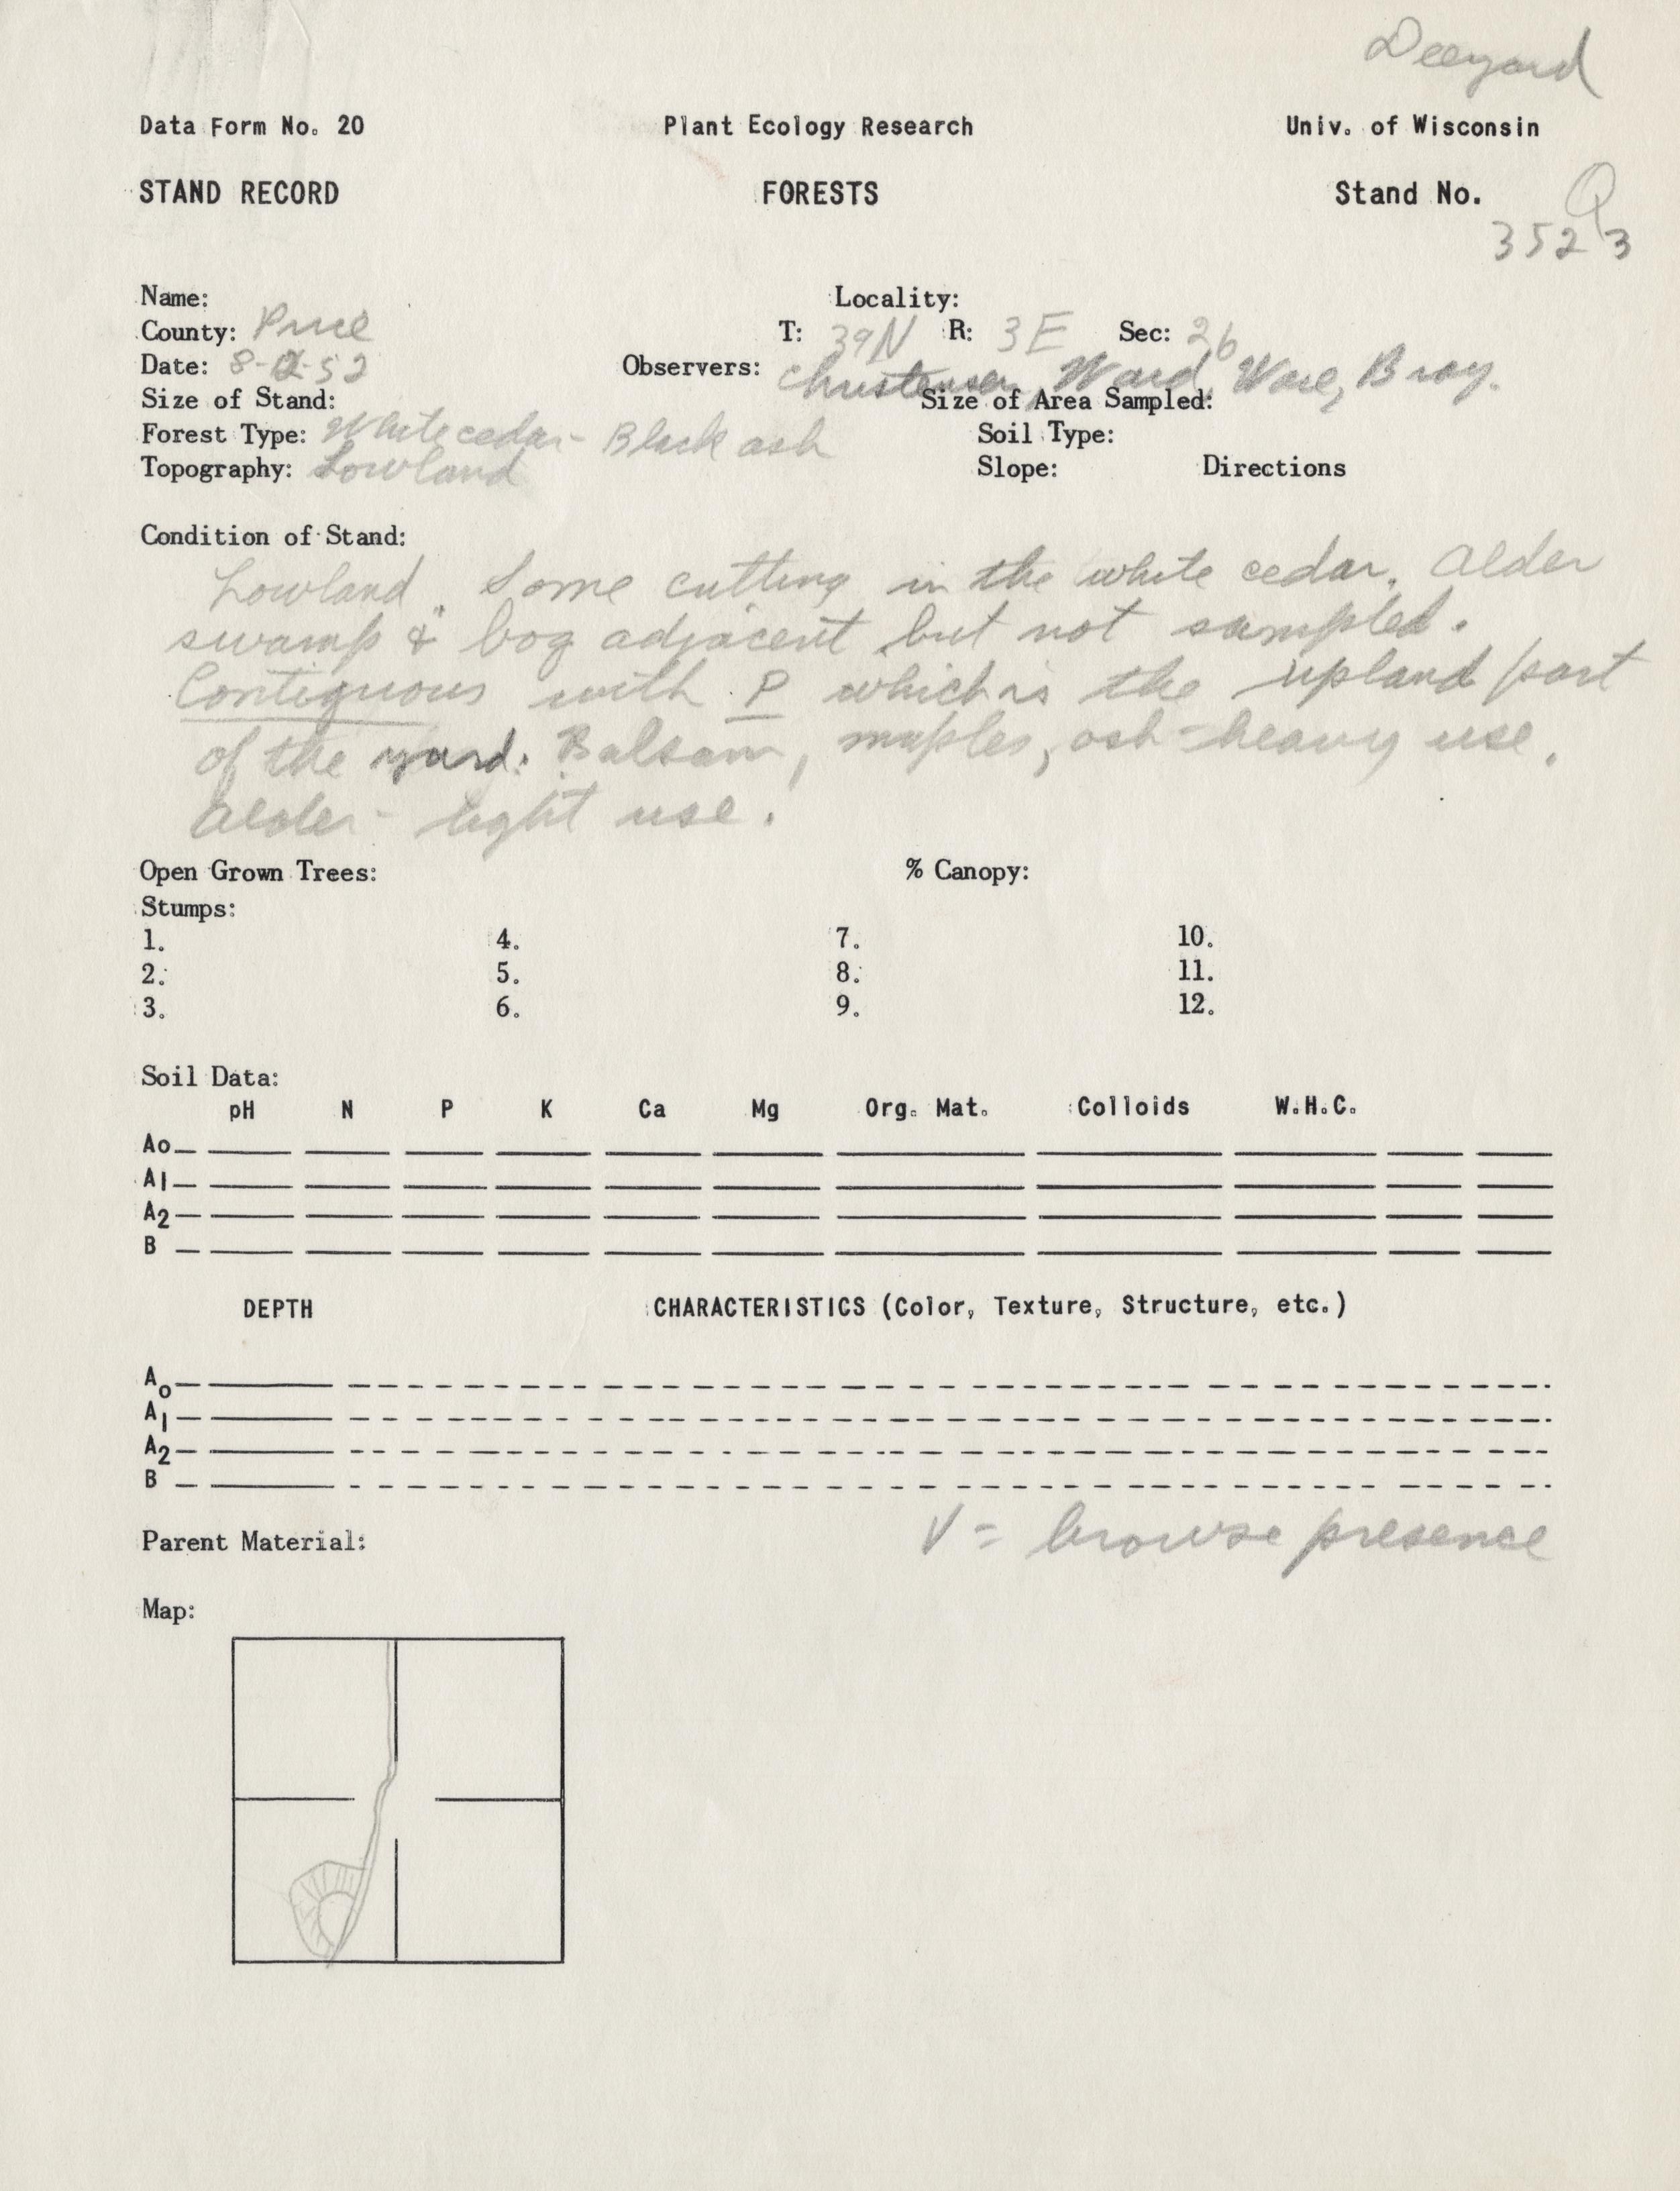 Deeryard
Data Form No. 20 Plant Ecology Research Univ. of Wisconsin
STAND RECORD FORESTS Stand No. Q
3523
Name: Locality:
County: Price T: 39N R: 3E Sec: 26
Date: 8-2-52 Observers: Christensen, Ward, Ware, Bray.
Size of Stand: Size of Area Sampled:
Forest Type: White cedar - Black ash Soil Type:
Topography: Lowland Slope: Directions
Condition of Stand:
Lowland. Some cutting in the white cedar. Alder
swamp & bog adjacent but not sampled.
Contiguous with P which is the upland part
of the yard. Balsam, maples, ash - heavy use.
Alder - light use.
Open Grown Trees: % Canopy:
Stumps:
1. 4. 7. 10.
2. 5. 8. 11.
3. 6. 9. 12.
Soil Data:
pH N P K Ca Mg Org. Mat. Colloids W.H.C.
Ao
A1
A2
B
DEPTH CHARACTERISTICS (Color, Texture, Structure, etc.)
Ao
A1
A2
B
V = browse presence
Parent Material:
Map: